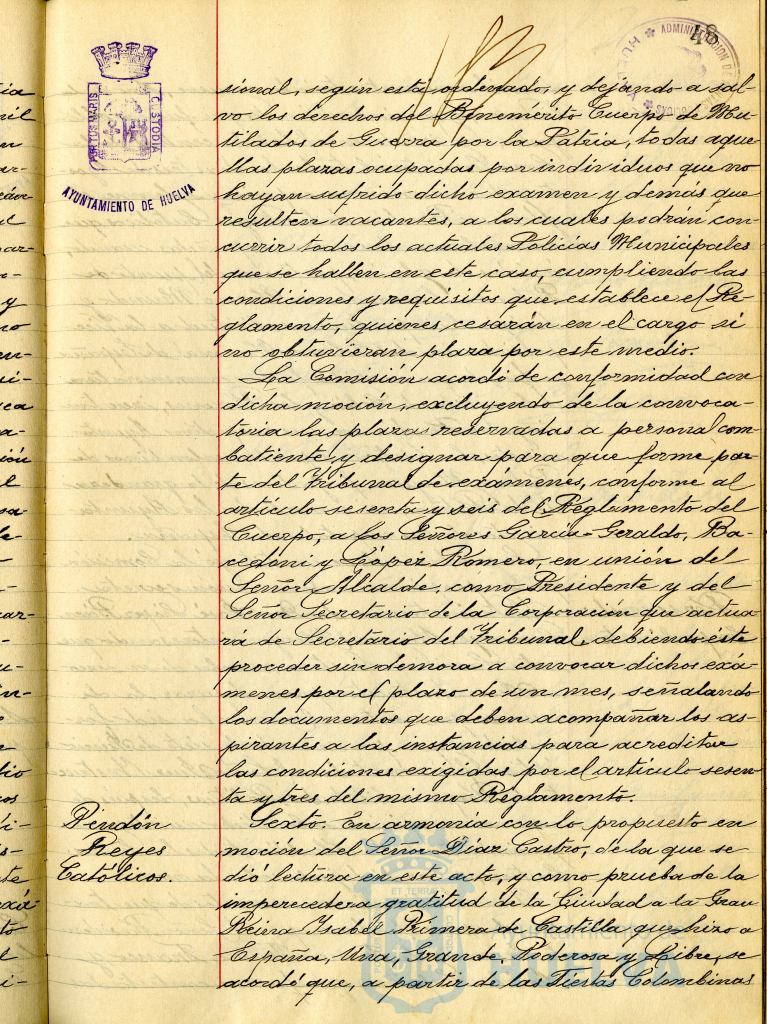 48
POR TUS MARIS CUSTODIA
AYUNTAMIENTO DE HUELVA
sional, según está ordenado, y dejando a sal-
vo los derechos del Benemérito Cuerpo de Mu-
tilados de Guerra por la Patria, todas aque-
llas plazas ocupadas por individuos que no
hayan sufrido dicho examen y demás que
resulten vacantes, a los cuales podrán con-
currir todos los actuales Policías Municipales
que se hallen en este caso, cumpliendo las
condiciones y requisitos que establece el Re-
glamento, quienes cesarán en el cargo si
no obtuvieran plaza por este medio.
La Comisión acordó de conformidad con
dicha moción, excluyendo de la convoca-
toria las plazas reservadas a personal com-
batiente y designar para que forme par-
te del Tribunal de exámenes, conforme al
artículo sesenta y seis del Reglamento del
Cuerpo, a los Señores García-Geraldo, Ba-
cedoni y López Romero, en unión del
Señor Alcalde, como Presidente y del
Señor Secretario de la Corporación que actua-
rá de Secretario del Tribunal, debiendo éste
proceder sin demora a convocar dichos exá-
menes por el plazo de un mes, señalando
los documentos que deben acompañar los as-
pirantes a las instancias para acreditar
las condiciones exigidas por el artículo sesen-
ta y tres del mismo Reglamento.
Pendón
Reyes
Católicos.
Sexto. En armonía con lo propuesto en
moción del Señor Díaz Castro, de la que se
dió lectura en este acto, y como prueba de la
imperecedera gratitud de la Ciudad a la Gran
Reina Isabel Primera de Castilla que hizo a
España, Una, Grande, Poderosa y Libre, se
acordó que, a partir de las Fiestas Colombinas